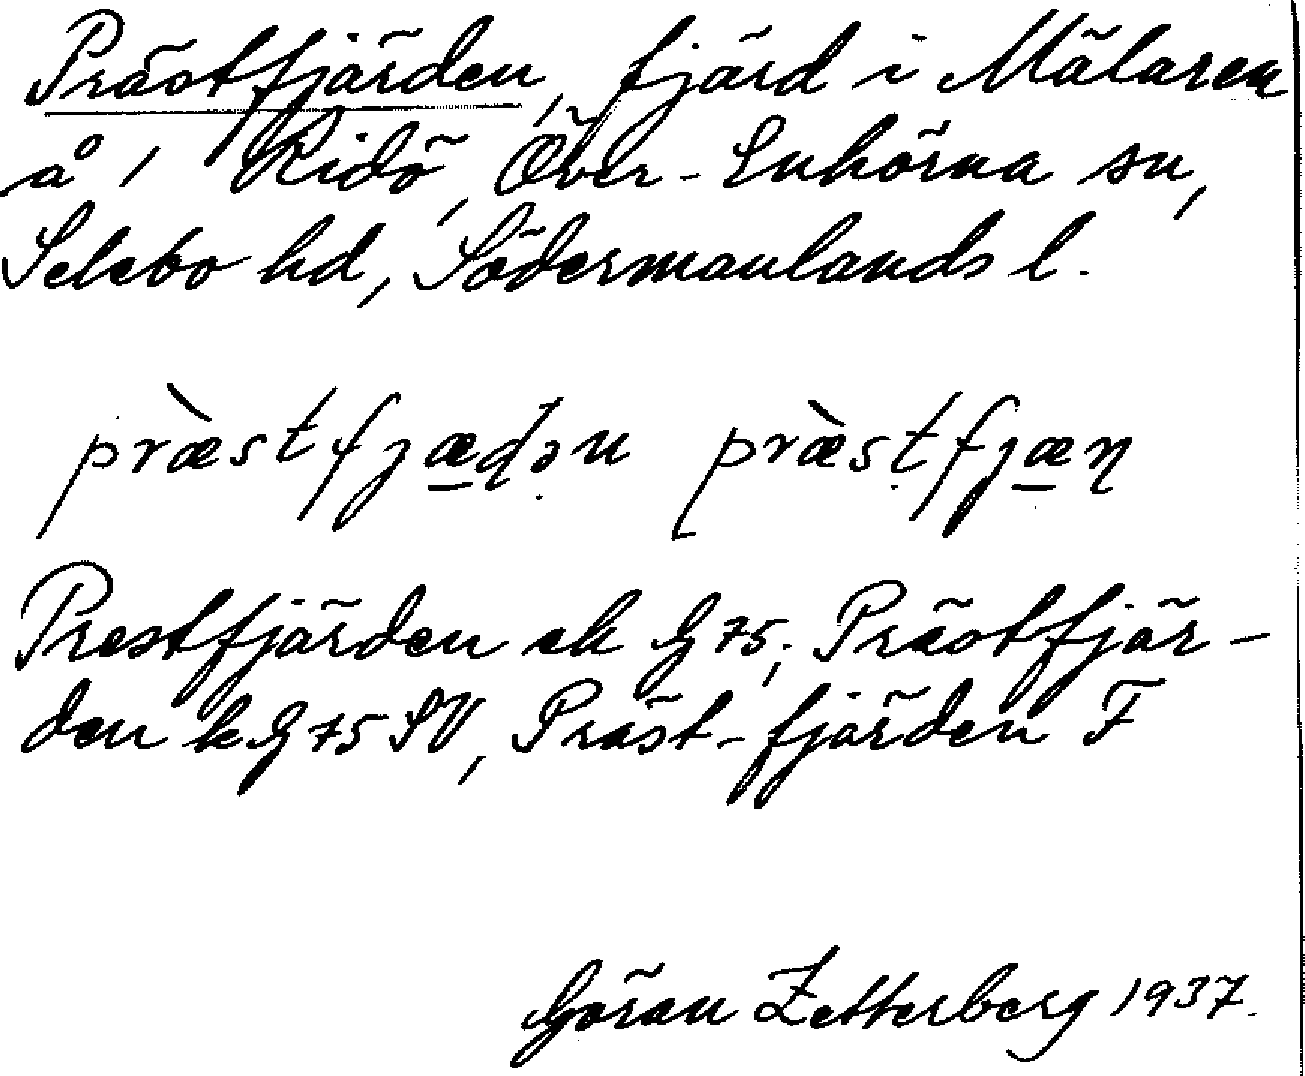 Prästfjärden, fjärd i Mälaren
å 1 Ridö, Över-Enhörna sn,
Selebo hd, Södermanlands l.
prὰstfjæḍən prὰstfjæɳ
Prestfjärden ek G 75; Prästfjär-
den k G 75 SV, Präst-fjärden F
Göran Zetterberg 1937.